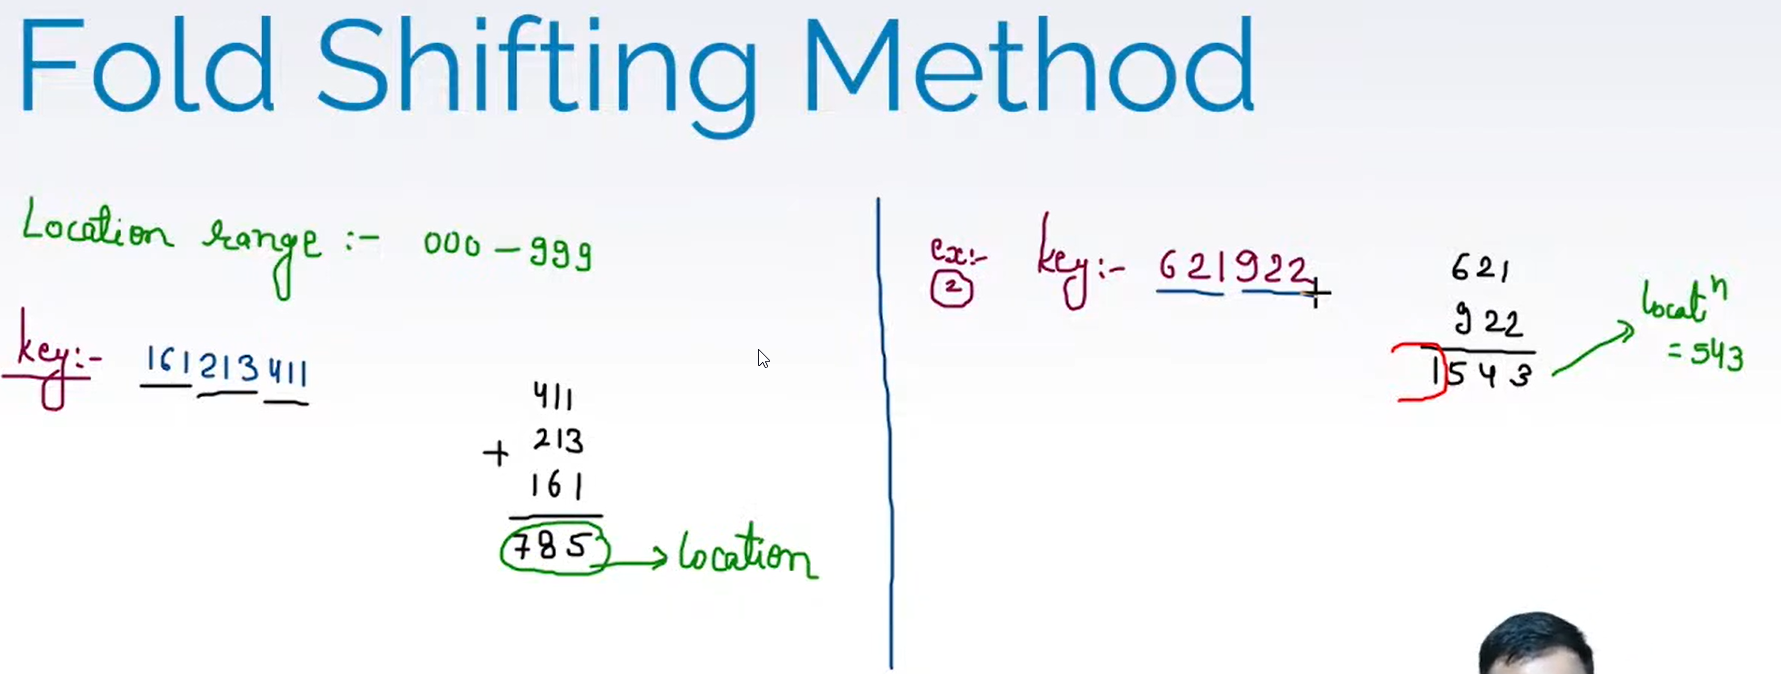 Fold Shifting Method
Location range :- 000 - 999
key:- 161213411
411
+ 213
161
785 → Location
ex:- 2
key:- 621922
621
922
1543
locatⁿ
= 543